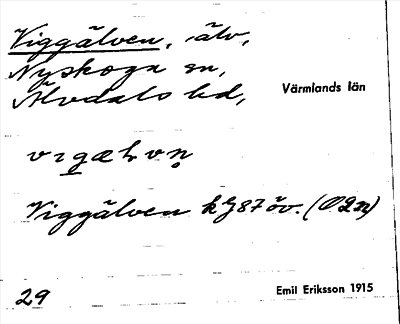 Viggälven, älv,
Nyskoga sn,
Älvdals hd,
Värmlands län
Viggälven
29
Emil Eriksson 1915